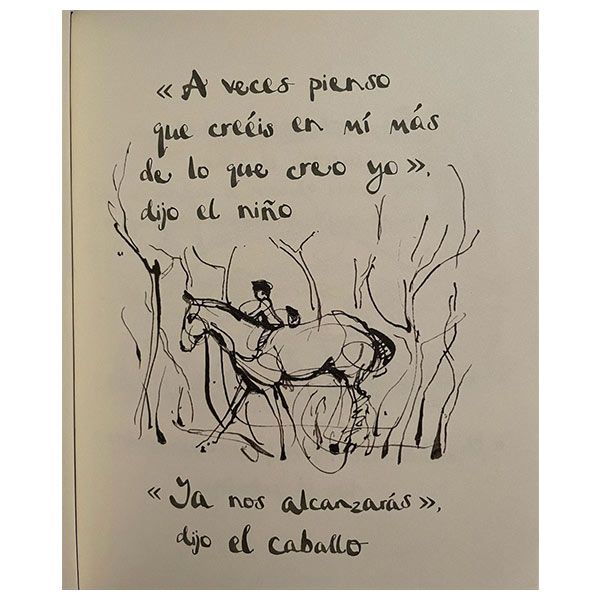 «A veces pienso
que creéis en mí más
de lo que creo yo»,
dijo el niño
«Ya nos alcanzarás»,
dijo el caballo